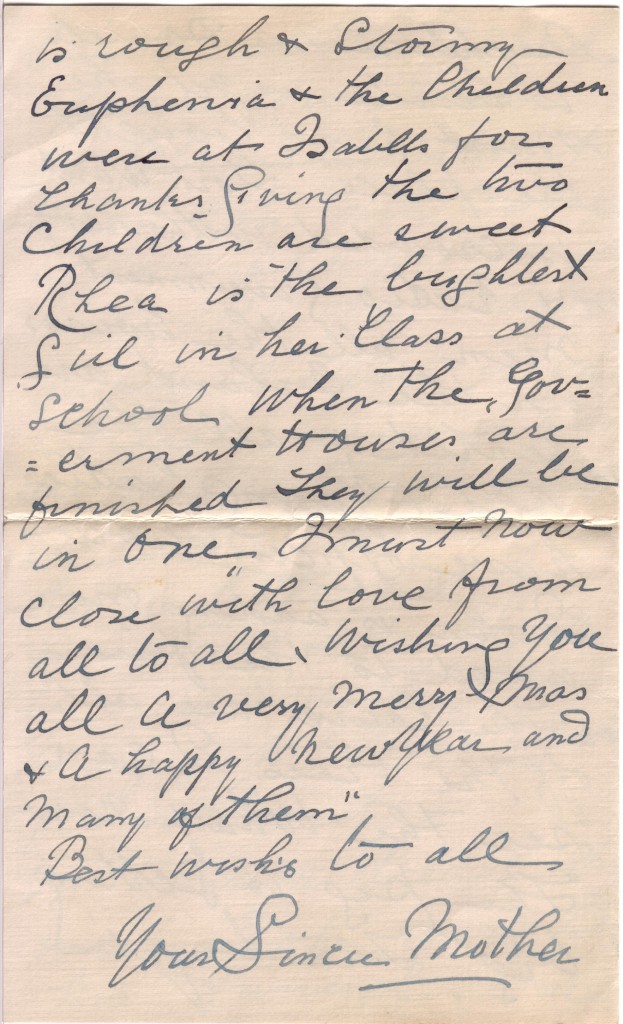 is rough & Stormy
Euphemia & the Children
were at Isabells for
thanks-Giving the two
Children are sweet
Rhea is the brightest
Girl in her Class at
School when the, Gov=
=erment Houses are
finished They will be
in one I must now
Close "with love from
all to all, Wishing You
all A very Merry Xmas
& A happy New Year and
Many of them"
Best wishs to all
Your Sincere Mother